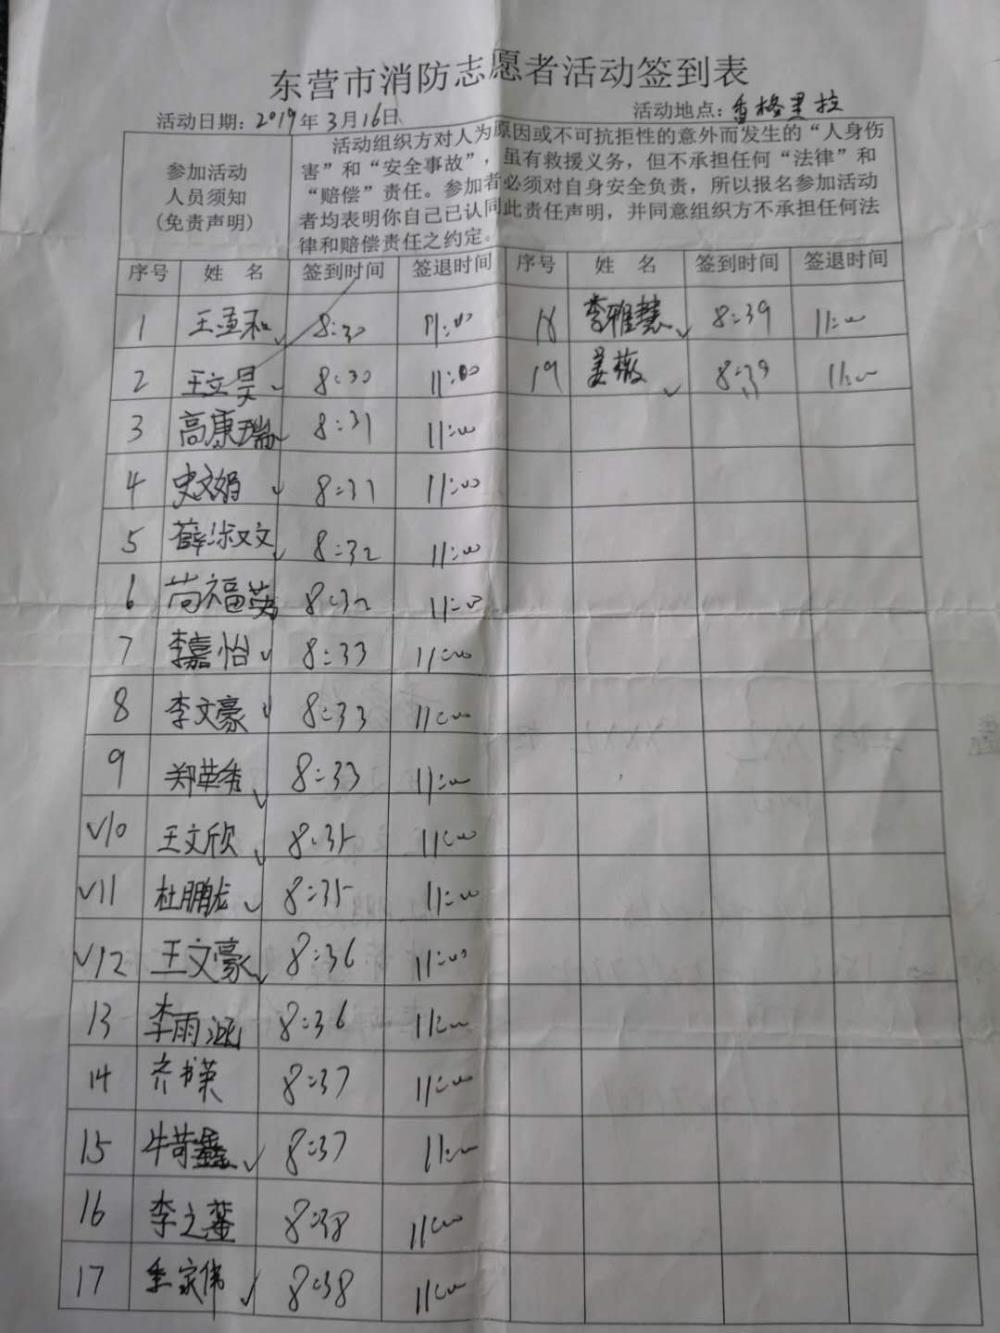 东营市消防志愿者活动签到表
活动日期：2019年3月16日 活动地点：香格里拉
参加活动
人员须知
(免责声明)
活动组织方对人为原因或不可抗拒性的意外而发生的“人身伤
害”和“安全事故”，虽有救援义务，但不承担任何“法律”和
“赔偿”责任。参加者必须对自身安全负责，所以报名参加活动
者均表明你自己已认同此责任声明，并同意组织方不承担任何法
律和赔偿责任之约定。
序号 姓 名 签到时间 签退时间 序号 姓 名 签到时间 签退时间
1 王孟和✓ 8:30 11:00 18 李雅慧✓ 8:39 11:00
2 王文昊✓ 8:30 11:00 19 姜薇✓ 8:39 11:00
3 高康瑞✓ 8:31 11:00
4 史文娟✓ 8:31 11:00
5 薛淑文✓ 8:32 11:00
6 尚福英 8:32 11:00
7 李嘉怡✓ 8:33 11:00
8 李文豪✓ 8:33 11:00
9 郑英秀✓ 8:33 11:00
✓10 王文欣✓ 8:35 11:00
✓11 杜鹏龙✓ 8:35 11:00
✓12 王文豪✓ 8:36 11:00
13 李雨涵 8:36 11:00
14 齐书荣 8:37 11:00
15 牛荷鑫✓ 8:37 11:00
16 李之 8:38 11:00
17 季家伟✓ 8:38 11:00